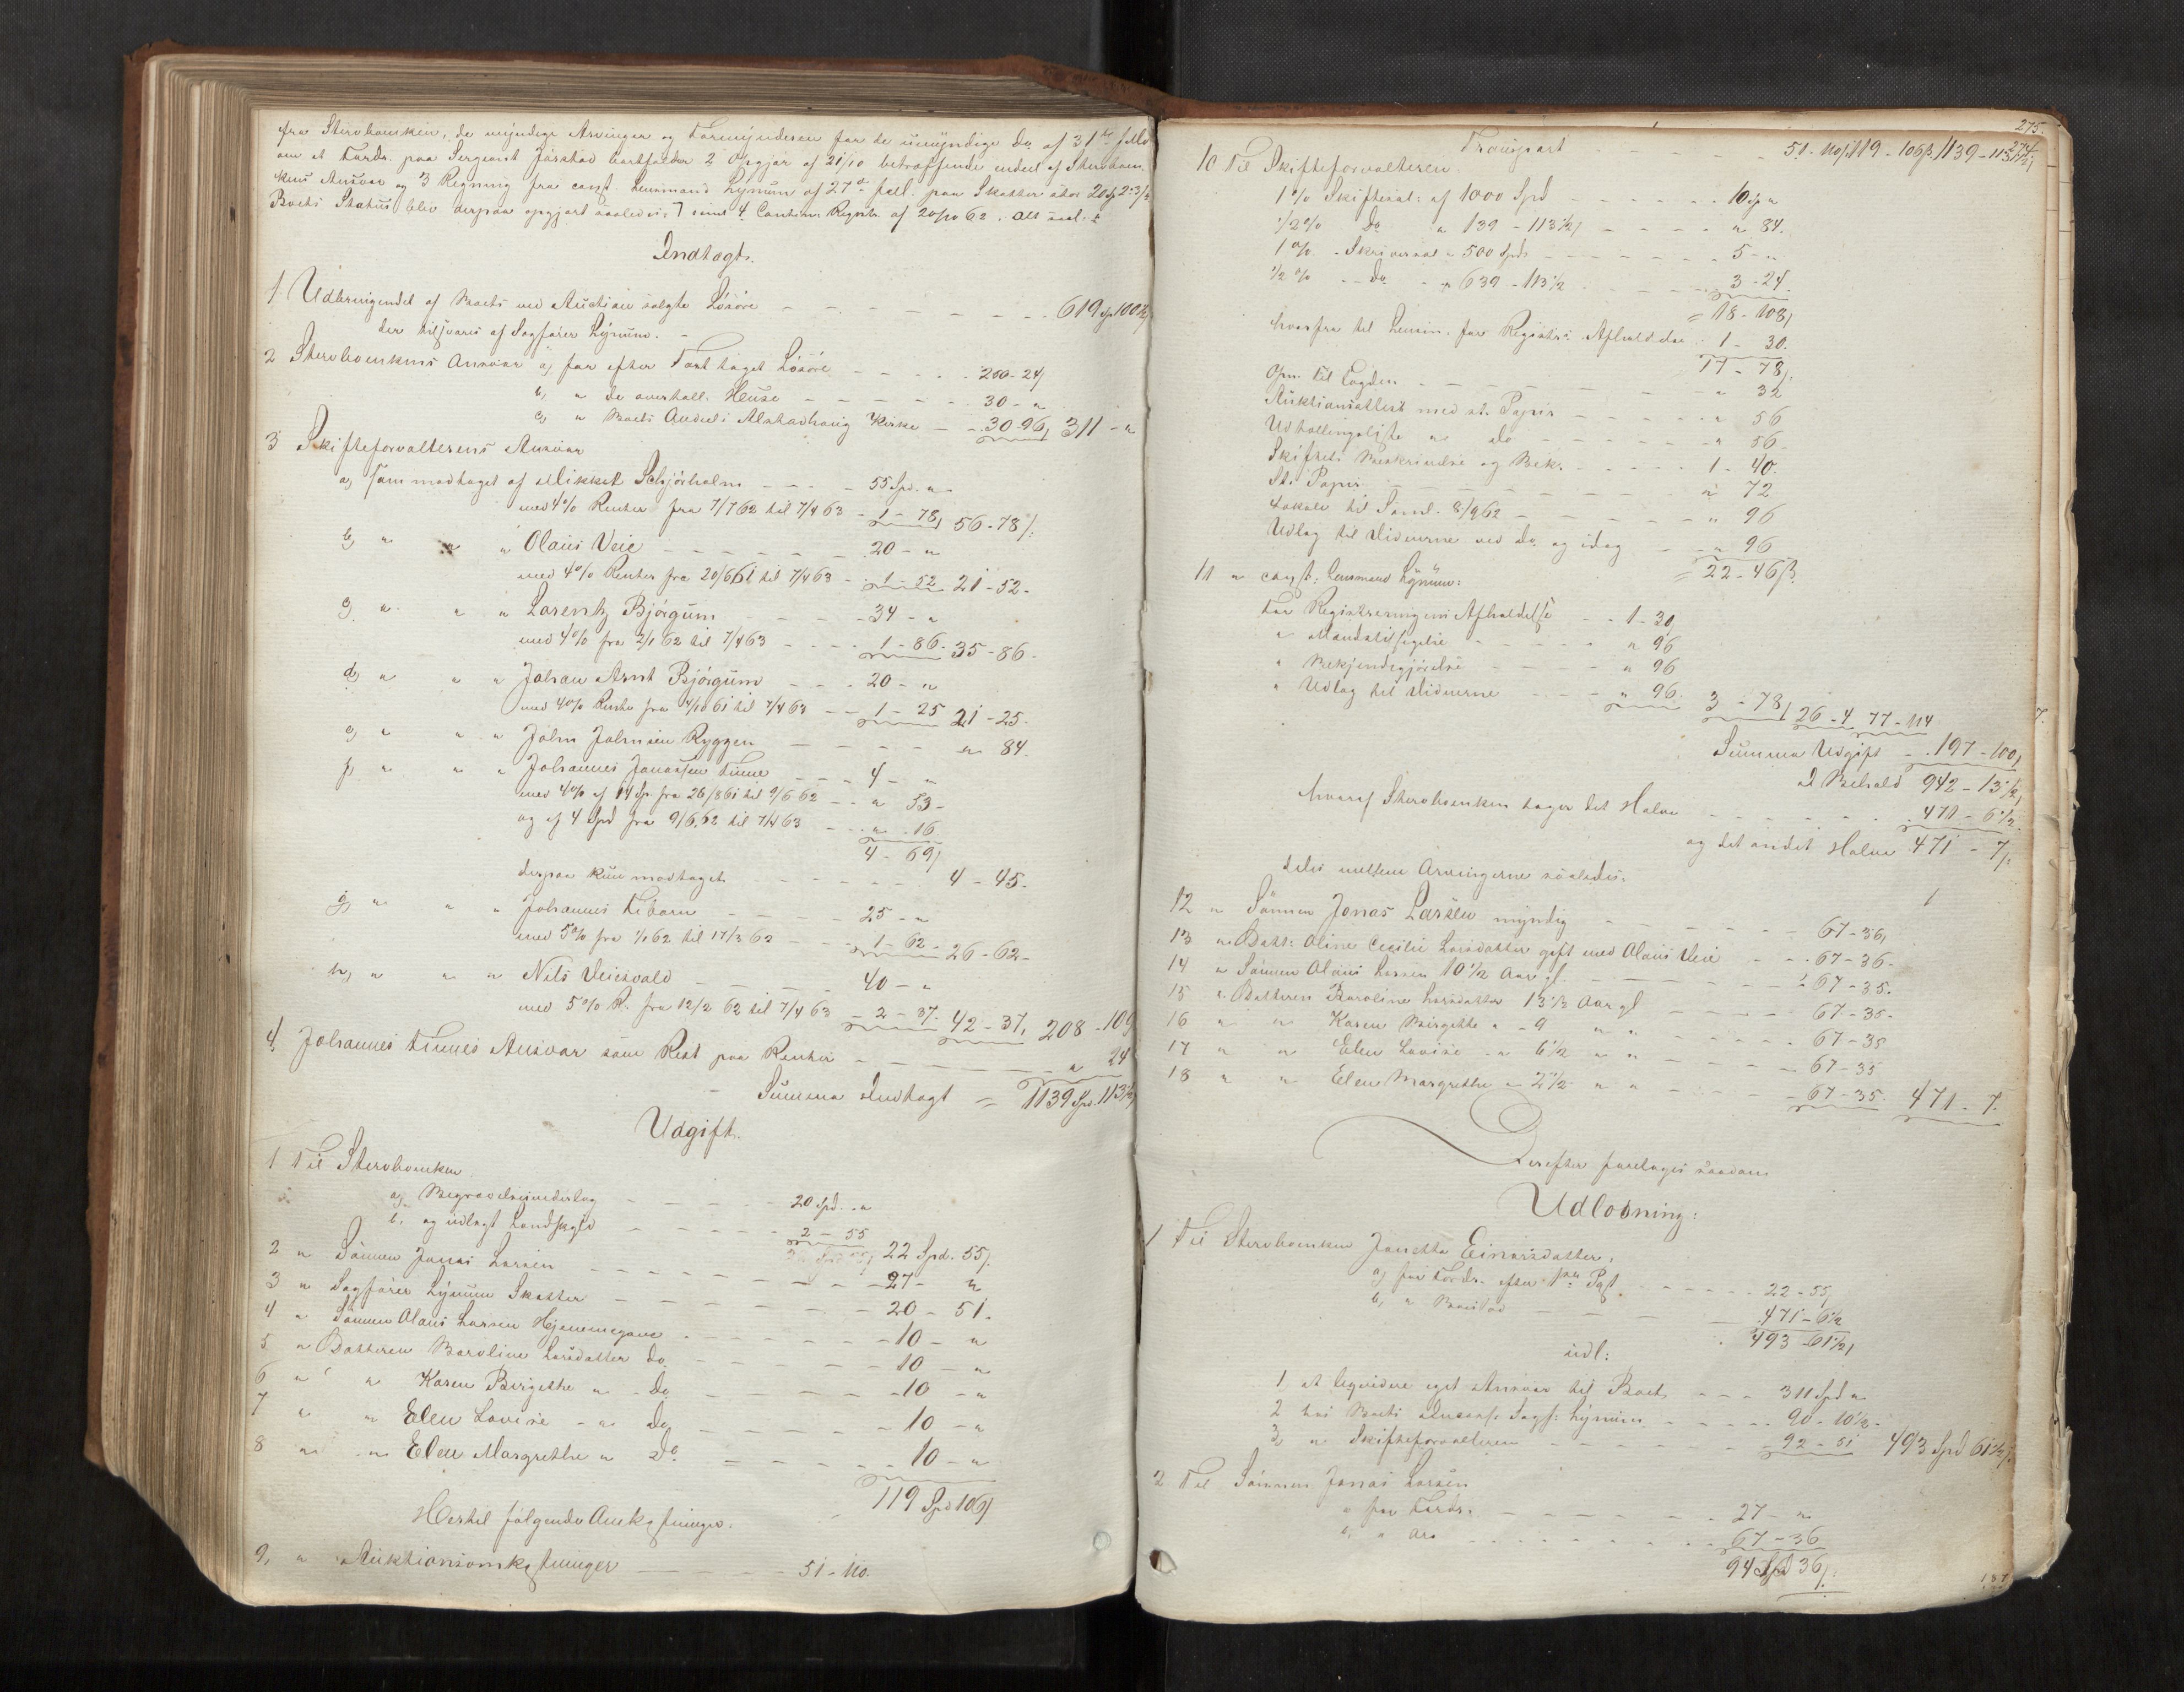 fra Stervboenken, de myndige Arvinger og Formynderen for de umyndige do af 31te f. Md.
om et Fordr. paa Sergeant Jörstad bortfalder 2 Opgjør af 21/10 betræffende endeel af Stervboen-
kens Ansvar og 3 Regning fra const. Lensmand Lynum af 27de paa Skatter
Boets Status blev derpaa opgjort saaledes: samt 4
Indtægt.
1 Udbringendet af Boets ved Auction solgte Lösöre - - 619 Spd 100½
der tilsvares af Sagförer Lynum. -
2 Stervboenkens Ansvar a, for efter Taxt taget Lösöre - - 250 - 24
b, " do overtall. Heuse - - 30 - "
c, " Boets Andeel i Alstadhoug Kirke - - 30 - 96 311 - "
3 Skifteforvalterens Ansvar
a, som modtaget af Mikkel Schjörholm - - 55 Spd. "
med 4% Renter fra 7/7 62 til 7/4 63 - 1 - 78 56 - 78
b, " " " Olaus Veie - - 20 - "
med 4% Renter fra 20/6 61 til 7/4 63 - 1 - 52 21 - 52 -
c, " " " Lorentz Bjørgum - - 34 - "
med 4% fra 2/1 62 til 7/4 63 - - 1 - 86 - 35 - 86 -
d, " " " Johan Arnt Bjørgum - - 20 - "
med 4% Rente fra 4/10 61 til 7/4 63 - - 1 - 25 21 - 25 -
e, " " " John Johnsen Ryggen - - " 84
f, " " " Johannes Jonassen Tinne - - 4 - "
med 4% af 14 Sp. fra 26/8 61 til 9/6 62 - - " 53 -
og af 4 Spd fra 9/6 62 til 7/4 63 - - " 16
4 - 69
derpaa kun modtaget - - 4 - 45.
g, " " " Johannes - - 25 - "
med 5% fra 1/1 62 til 17/3 62 - - 1 - 62 - 26 - 62 -
h, " " " Nils Veiesvald - - 40 - "
med 5% R. fra 12/2 62 til 7/4 63 - 2 - 37. 42 - 37, 208 - 109
4, Johannes Tinnes Ansvar som Rest paa Renter - - " 24
Summa Indtægt = 1139 Spd. 113½
Udgift.
1 Til Stervboenken
a, Begravelsesunderlag - - 20 Spd. "
b, og udlagt Landskyld - - 2 - 55
22 Spd. 55
2 " Sönnen Jonas Larsen - - 27 - "
3 " Sagförer Lynum Skatter - - 20 - 51.
4 " Sönnen Olaus Larsen Hjemmegave - - 10 - "
5 " Datteren Baroline Larsdatter do - - 10 - "
6 " " Karen Birgethe " do - - 10 - "
7 " " Elen Lovise - " do - - 10 - "
8 " " Elen Margrethe " do - - 10 - "
119 Spd 106
Hertil følgende Omkostninger.
9, " Auktionsomkostninger - - 51 - 110.
275.
274
Transport - - 51 - 110 119 - 106 1139 - 113½
10 Til Skifteforvalteren
1% Skiftesal: af 1000 Spd - - 10 Sp "
½% do " 139 - 113½ - - " 84.
1% - Skriversal " 500 Spd - - 5 - "
½% - do - " 639 - 113½ - - 3 - 24.
= 18 - 108
hvorfra til Lensm. for Registr: Afholdelse - 1 - 30.
17 - 78
Opn. til Fogden - - " 32
Auktionsattest med st. Papir - - " 56
Udkallingsliste " do - - " 56 -
Skiftets Beskrivelse og Bek. - - 1 - 40.
St. Papir - - " 72
Lokale til Saml. 8/9 62 - - " 96
Udlag til Vidnerne ved do og idag - " 96
= 22 - 46
11 " const: Lensmand Lynum:
For Registreringens Afholdelse - - 1 - 30
" Mandatsigelse - - " 96
" Bekjendtgjörelse - - " 96
" Udlag til Vidnerne - - " 96 3 - 78 26 - 4 77 - 114
Summa Udgift - 197 - 100
I Behold 942 - 13½
hvoraf Stervboenken tager det Halve - - 471 - 6½
og det andet Halve 471 - 7
deles mellem Arvingerne saaledes:
12 " Sönnen Jonas Larsen myndig - - 67 - 36
13 " Datt: Oline Cecilie Larsdatter gift med Olaus Veie - - 67 - 36 -
14 " Sönnen Olaus Larsen 10½ Aar gl. - - 67 - 35.
15 " Datteren Baroline Larsdatter 13½ Aar gl - - 67 - 35 -
16 " " Karen Birgethe " - 9 " " - - 67 - 35
17 " " Elen Lovise - " 6½ " " - - 67 - 35
18 " " Elen Margrethe - 2½ " " - - 67 - 35. 471 - 7.
Derefter foretages saadan
Udlodning:
1 Til Stervboenken Jonetta Einarsdatter,
a, for Fordr. efter 1ste Post - - 22 - 55
b, " Boeslod - - 471 - 6½
493 - 61½
udl:
1 at liqvidere eget Ansvar til Boet - - 311 Spd "
2 hos Boets Incass. Sagf: Lynum - - 90 - 10½ -
3 " Skifteforvalteren - - 92 - 51 493 Spd 61½
2 Til Sönnen Jonas Larsen
a for Fordr. - - 27 - "
b, " Arv - - 67 - 36
94 Spd 36